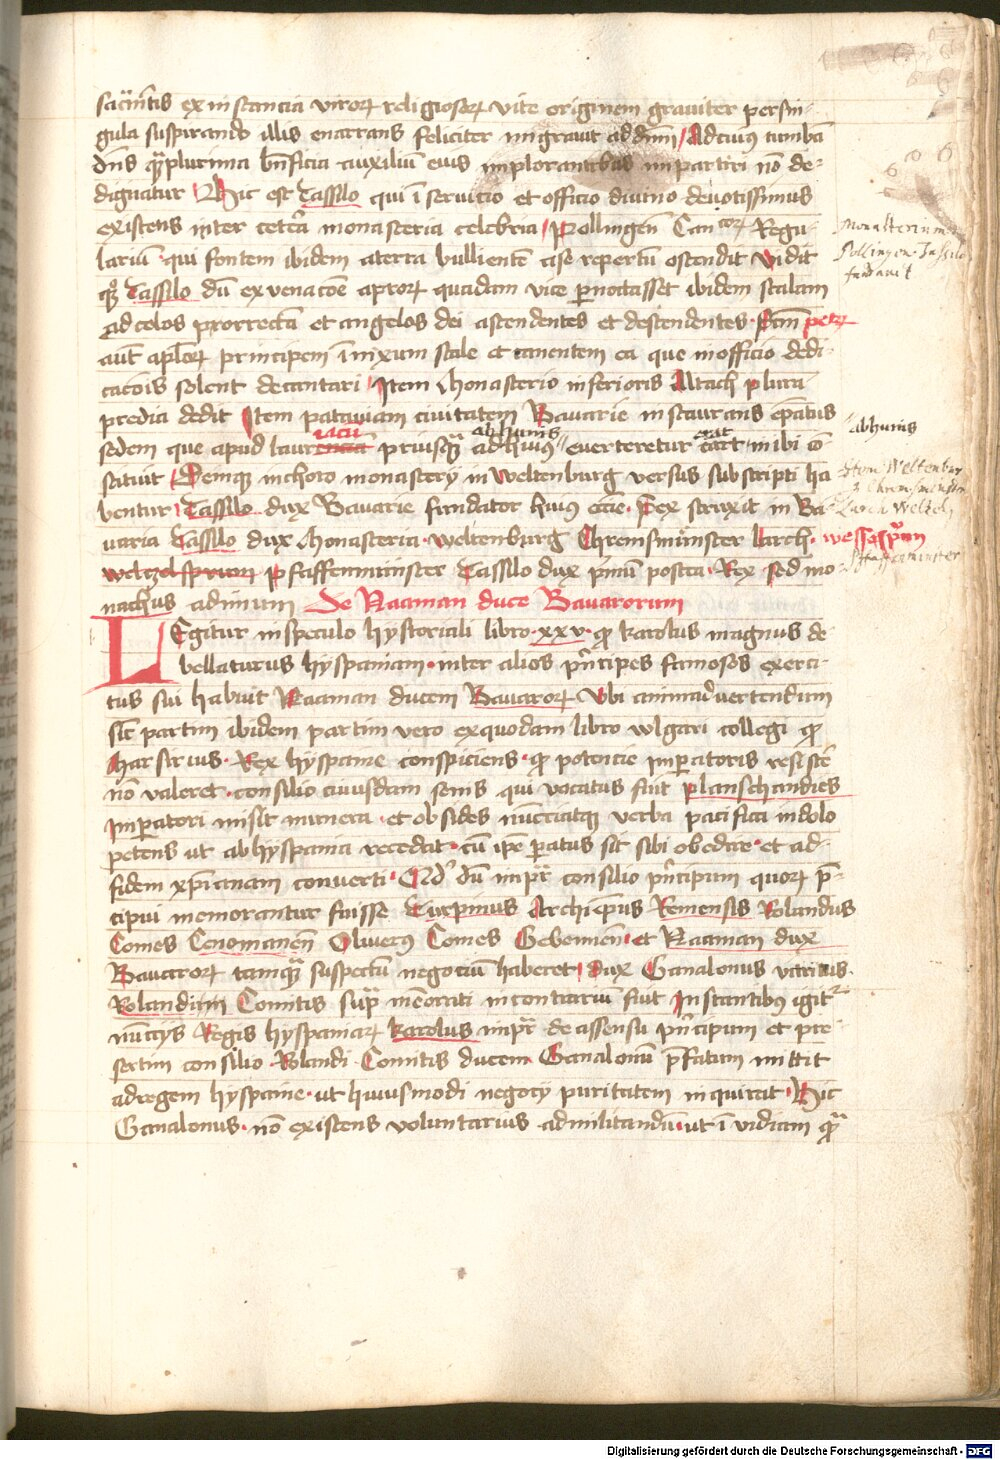 sac̄mētis ex instancia viroꝝ religiosoꝝ vite originem graviter persin-
gula suspirando illis enarrans feliciter migravit ad dnm̄ Ad cuiꝰ tumbā
dn̄s qꝫplurima bn̄ficia auxiliū eius implorantibus impartiri nō de-
dignatur Hic est Tassilo qui ī servitio et officio divino devotissimus
existens inter cetēa monasteria celebria Pollingen̄ Can̄coꝝ Regu-
lariū qui fontem ibidem aterra bullientē a se repertū ostendit vidit
qꝫ Tassilo dū ex venacōe aproꝝ quadam vice p̱noctasset ibidem scalam
ad celos prorrectā et angelos dei ascendentes et descendentes Scm̄ petꝝ
aut̄ apl̄oꝝ principem īnixum scale et canentem ea que in officio dedi-
cacōis solent decantari Item Monasterio inferioris Altach plura
predia dedit Item pataviam civitatem Bavarie instaurans ep̄atus
sedem que apud laur priusqꝫ ab hunis everteretur erat inibi cō
stituit Deinqꝫ in choro monastery in Weltenburg versus subscripti ha
bentur Tassilo dux Bavarie fundator huiꝰ ecc̄e Rex struxit in Ba
varia Tassilo dux Monasteria Weltenburg Chremsmūnster Larch wessesprūn
weltzelsprun Pfaffenmūnster Tassilo dux pⁱmū postea Rex sed mo
nachus ad imum De Naaman duce Bavarorum
LEgitur in speculo hystoriali libro xxv qꝫ karolus magnus de
bellaturus hyspaniam inter alios pn̄cipes famosos exerci-
tus sui habuit Naaman ducem Bavaroꝝ Ubi animadvertendum
sic̄ partim ibidem partim vero ex quodam libro wlgari collegi qꝫ
Marsirius Rex hyspanie conspiciens qꝫ potencie imp̱atoris resistē
nō valeret consilio cuiusdam senis qui vocatus fuit planschandies
Imp̱atori misit munera et obsides nūcciatqꝫ verba pacifica in dolo
petens ut ab hyspania recedat cū ipē p̱atus sit sibi obedire et ad
fidem xp̄ianam converti Qd̄ dū imp̱r consilio pn̄cipum quoꝝ p̄-
cipui memorantur fuisse Turpinus Archiep̄us Remensis Rolandus
Comes Cenomanen̄ Oliverꝰ Comes Gebennen̄ et Naaman dux
Bavaroꝝ tamqꝫ suspectū negociū haberet Dux Ganalonus vitricus
Rolandi Comitis supᵃ mēorati in contrariū fuit Instantibꝰ igitᵉ
nūccys Regis hyspaniaꝝ karolus imp̱r de assensu pn̄cipum et pre-
sertim consilio Rolandi Comitis ducem Ganalonū p̄fatum mittit
ad regem hyspanie ut huiusmodi negocy puritatem inquirat Hic
Ganalonus nō existens voluntarius ad militandū ut ī vidiam qꝫ
Monasterium
Pollingen Tassilo
fundavit
ab hunis
Digitalisierung gefördert durch die Deutsche Forschungsgemeinschaft - DFG